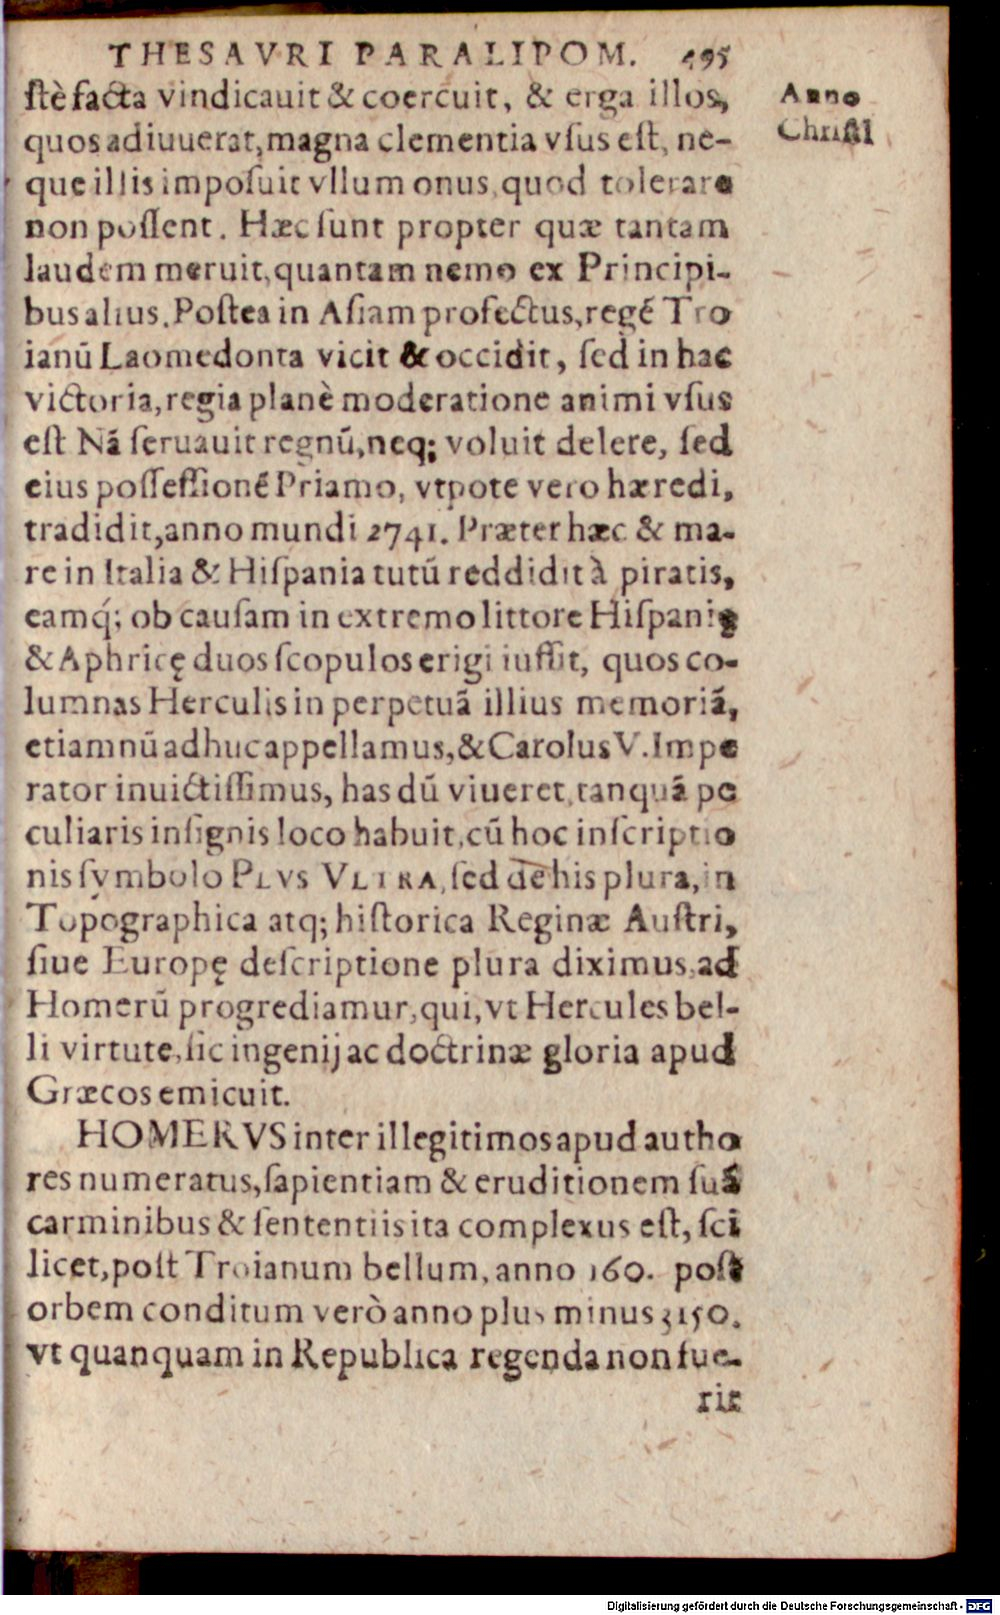 THESAVRI PARALIPOM. 495
Anno
Christi
ſtè facta vindicauit & coercuit, & erga illos,
quos adiuuerat, magna clementia vſus eſt, ne-
que illis impoſuit vllum onus, quod tolerare
non poſſent. Hæc ſunt propter quæ tantam
laudem meruit, quantam nemo ex Principi-
bus alius. Poſtea in Aſiam profectus, regẽ Tro
ianũ Laomedonta vicit & occidit, ſed in hac
victoria, regia planè moderatione animi vſus
eſt Nã ſeruauit regnũ, neq; voluit delere, ſed
eius poſſeſſionẽ Priamo, vtpote vero hæredi,
tradidit, anno mundi 2741. Præter hæc & ma-
re in Italia & Hiſpania tutũ reddidit à piratis,
eamq́; ob cauſam in extremo littore Hiſpanię
& Aphricę duos ſcopulos erigi iuſſit, quos co-
lumnas Herculis in perpetuã illius memoriã,
etiamnũ adhuc appellamus, & Carolus V. Impe
rator inuictiſſimus, has dũ viueret, tanquã pe
culiaris inſignis loco habuit, cũ hoc inſcriptio
nis ſymbolo PLVS VLTRA, ſed de his plura, in
Topographica atq; hiſtorica Reginæ Auſtri,
ſiue Europę deſcriptione plura diximus, ad
Homerũ progrediamur, qui, vt Hercules bel-
li virtute, ſic ingenij ac doctrinæ gloria apud
Græcos emicuit.
HOMERVS inter illegitimos apud autho
res numeratus, ſapientiam & eruditionem ſuã
carminibus & ſententiis ita complexus eſt, ſci
licet, poſt Troianum bellum, anno 160. poſt
orbem conditum verò anno plus minus 3150.
vt quanquam in Republica regenda non fue-
rit
Digitalisierung gefördert durch die Deutsche Forschungsgemeinschaft - DFG